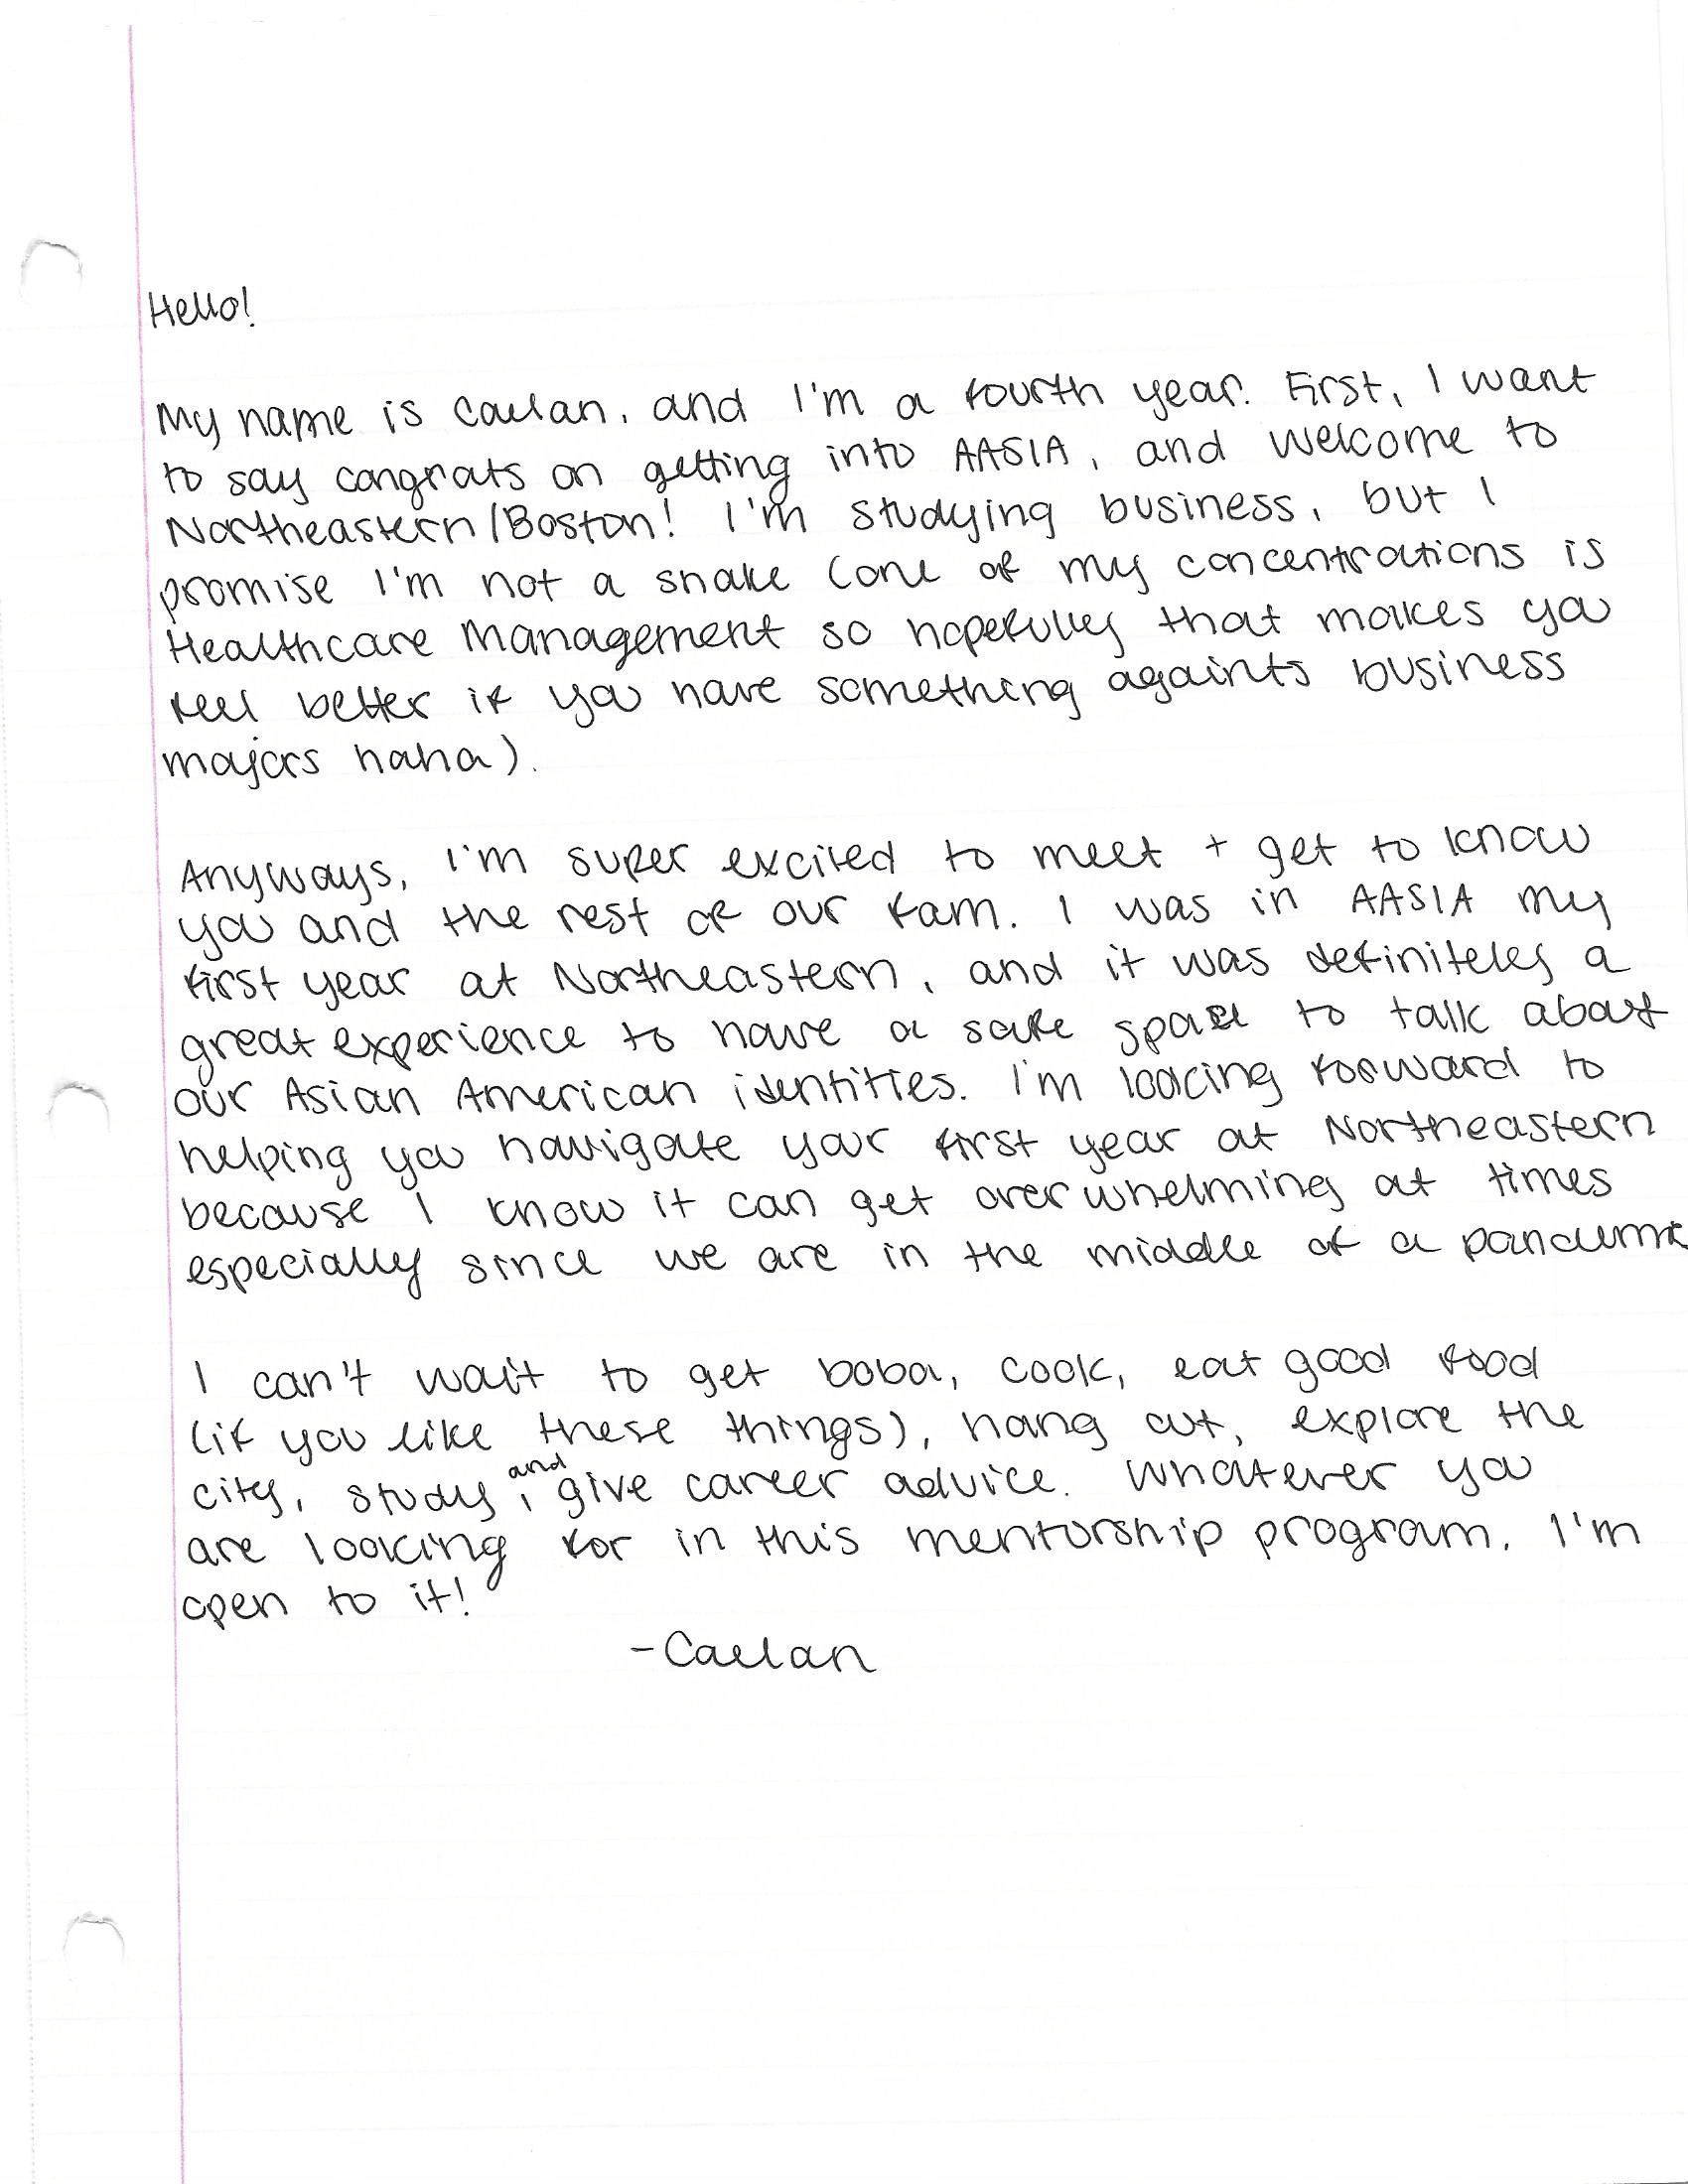 Hello!
My name is Caelan, and I'm a fourth year. First, I want
to say congrats on getting into AASIA, and welcome to
Northeastern/Boston! I'm studying business, but I
promise I'm not a snake (one of my concentrations is
Healthcare Management so hopefully that makes you
feel better if you have something againts business
majors haha).
Anyways, I'm super excited to meet + get to know
you and the rest of our fam. I was in AASIA my
first year at Northeastern, and it was definitely a
great experience to have a safe space to talk about
our Asian American identities. I'm looking forward to
helping you navigate your first year at Northeastern
because I know it can get overwhelming at times
especially since we are in the middle of a pandemic
I can't wait to get boba, cook, eat good food
(if you like these things), hang out, explore the
city, study, and give career advice. Whatever you
are looking for in this mentorship program, I'm
open to it!
-Caelan